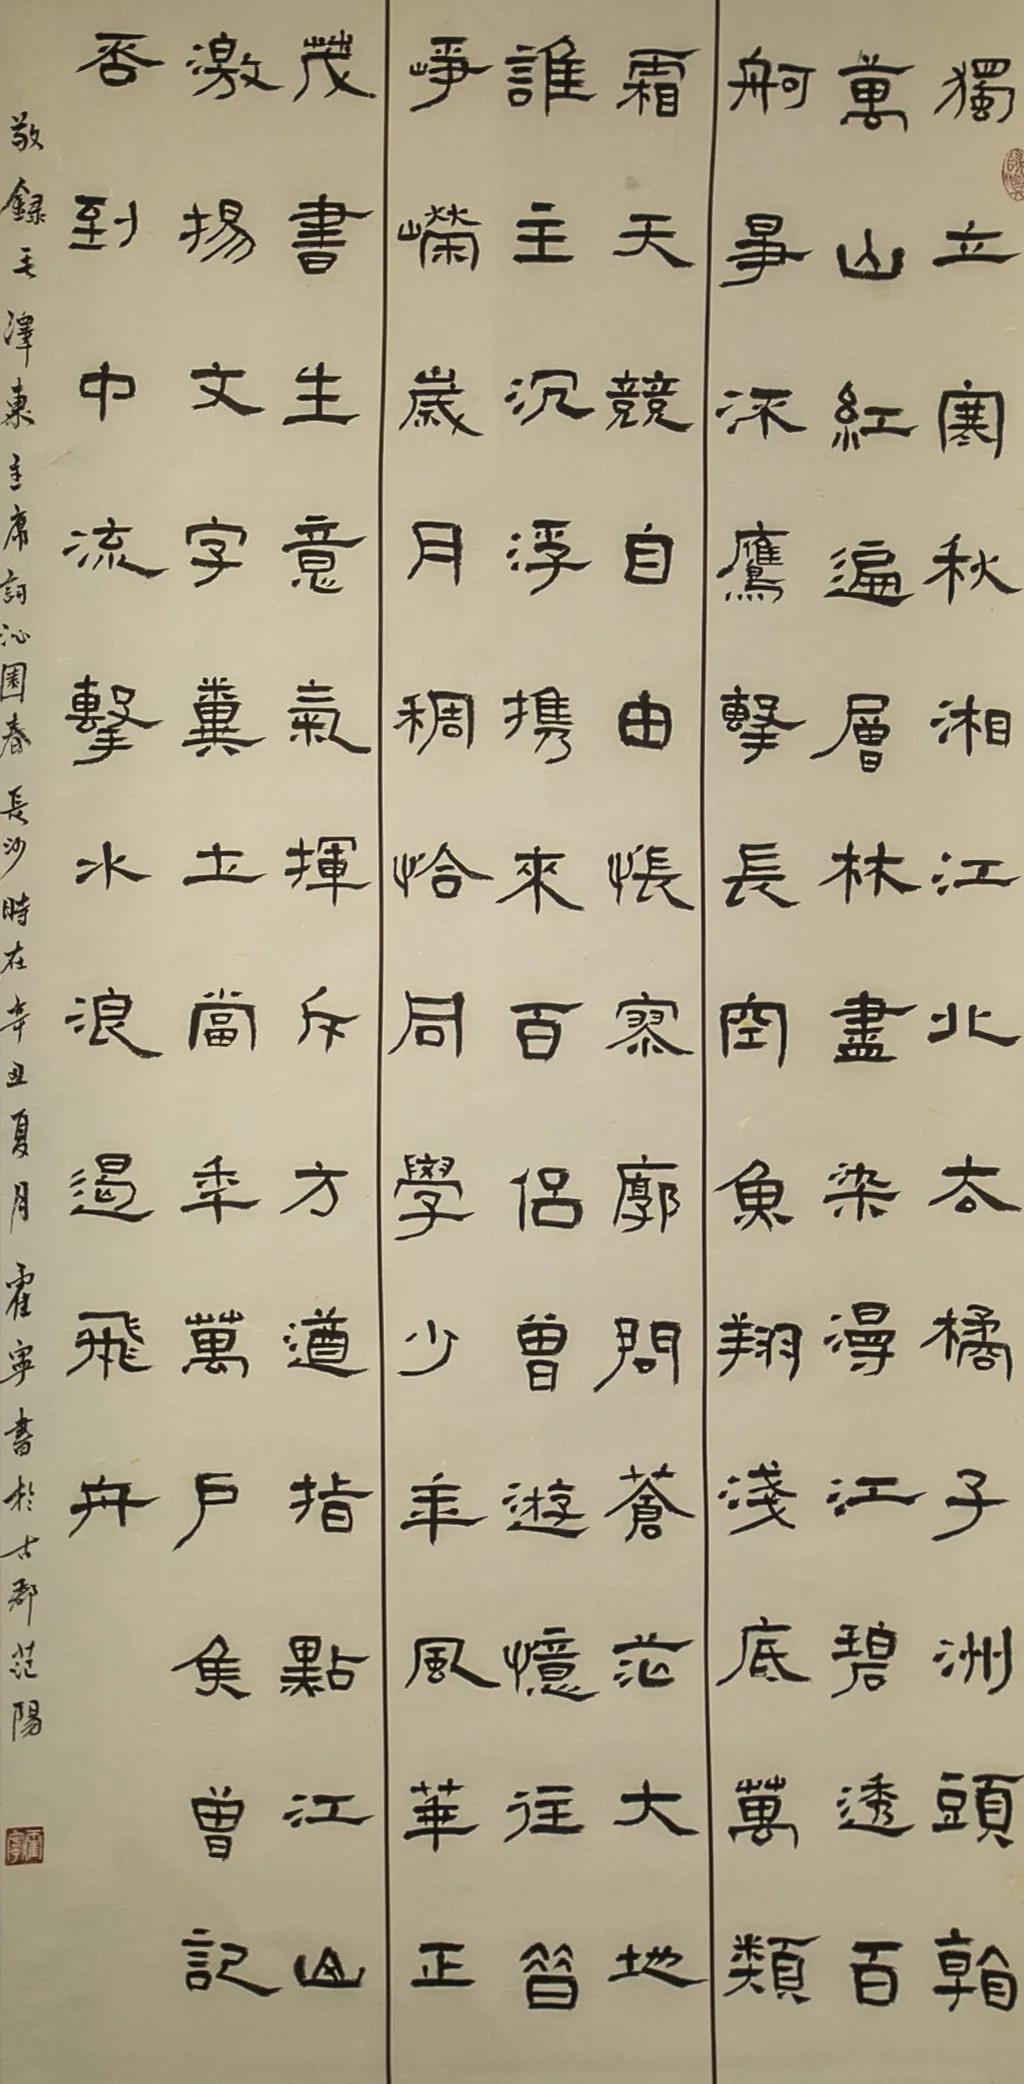 獨立寒秋湘江北去橘子洲頭看
萬山紅遍層林盡染漫江碧透百
舸爭流鷹擊長空魚翔淺底萬類
霜天競自由悵寥廓問蒼茫大地
誰主沉浮携來百侶曾遊憶往昔
崢嶸歲月稠恰同學少年風華正
茂書生意氣揮斥方遒指點江山
激揚文字糞土當年萬戶侯曾記
否到中流擊水浪遏飛舟
敬錄毛澤東主席詞沁園春長沙時在辛丑夏月霍寧書於古郡范陽
霍寧